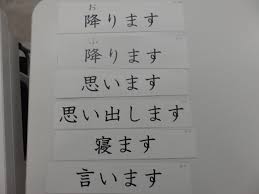 お
降ります
ふ
降ります
思います
思い出します
寝ます
言います